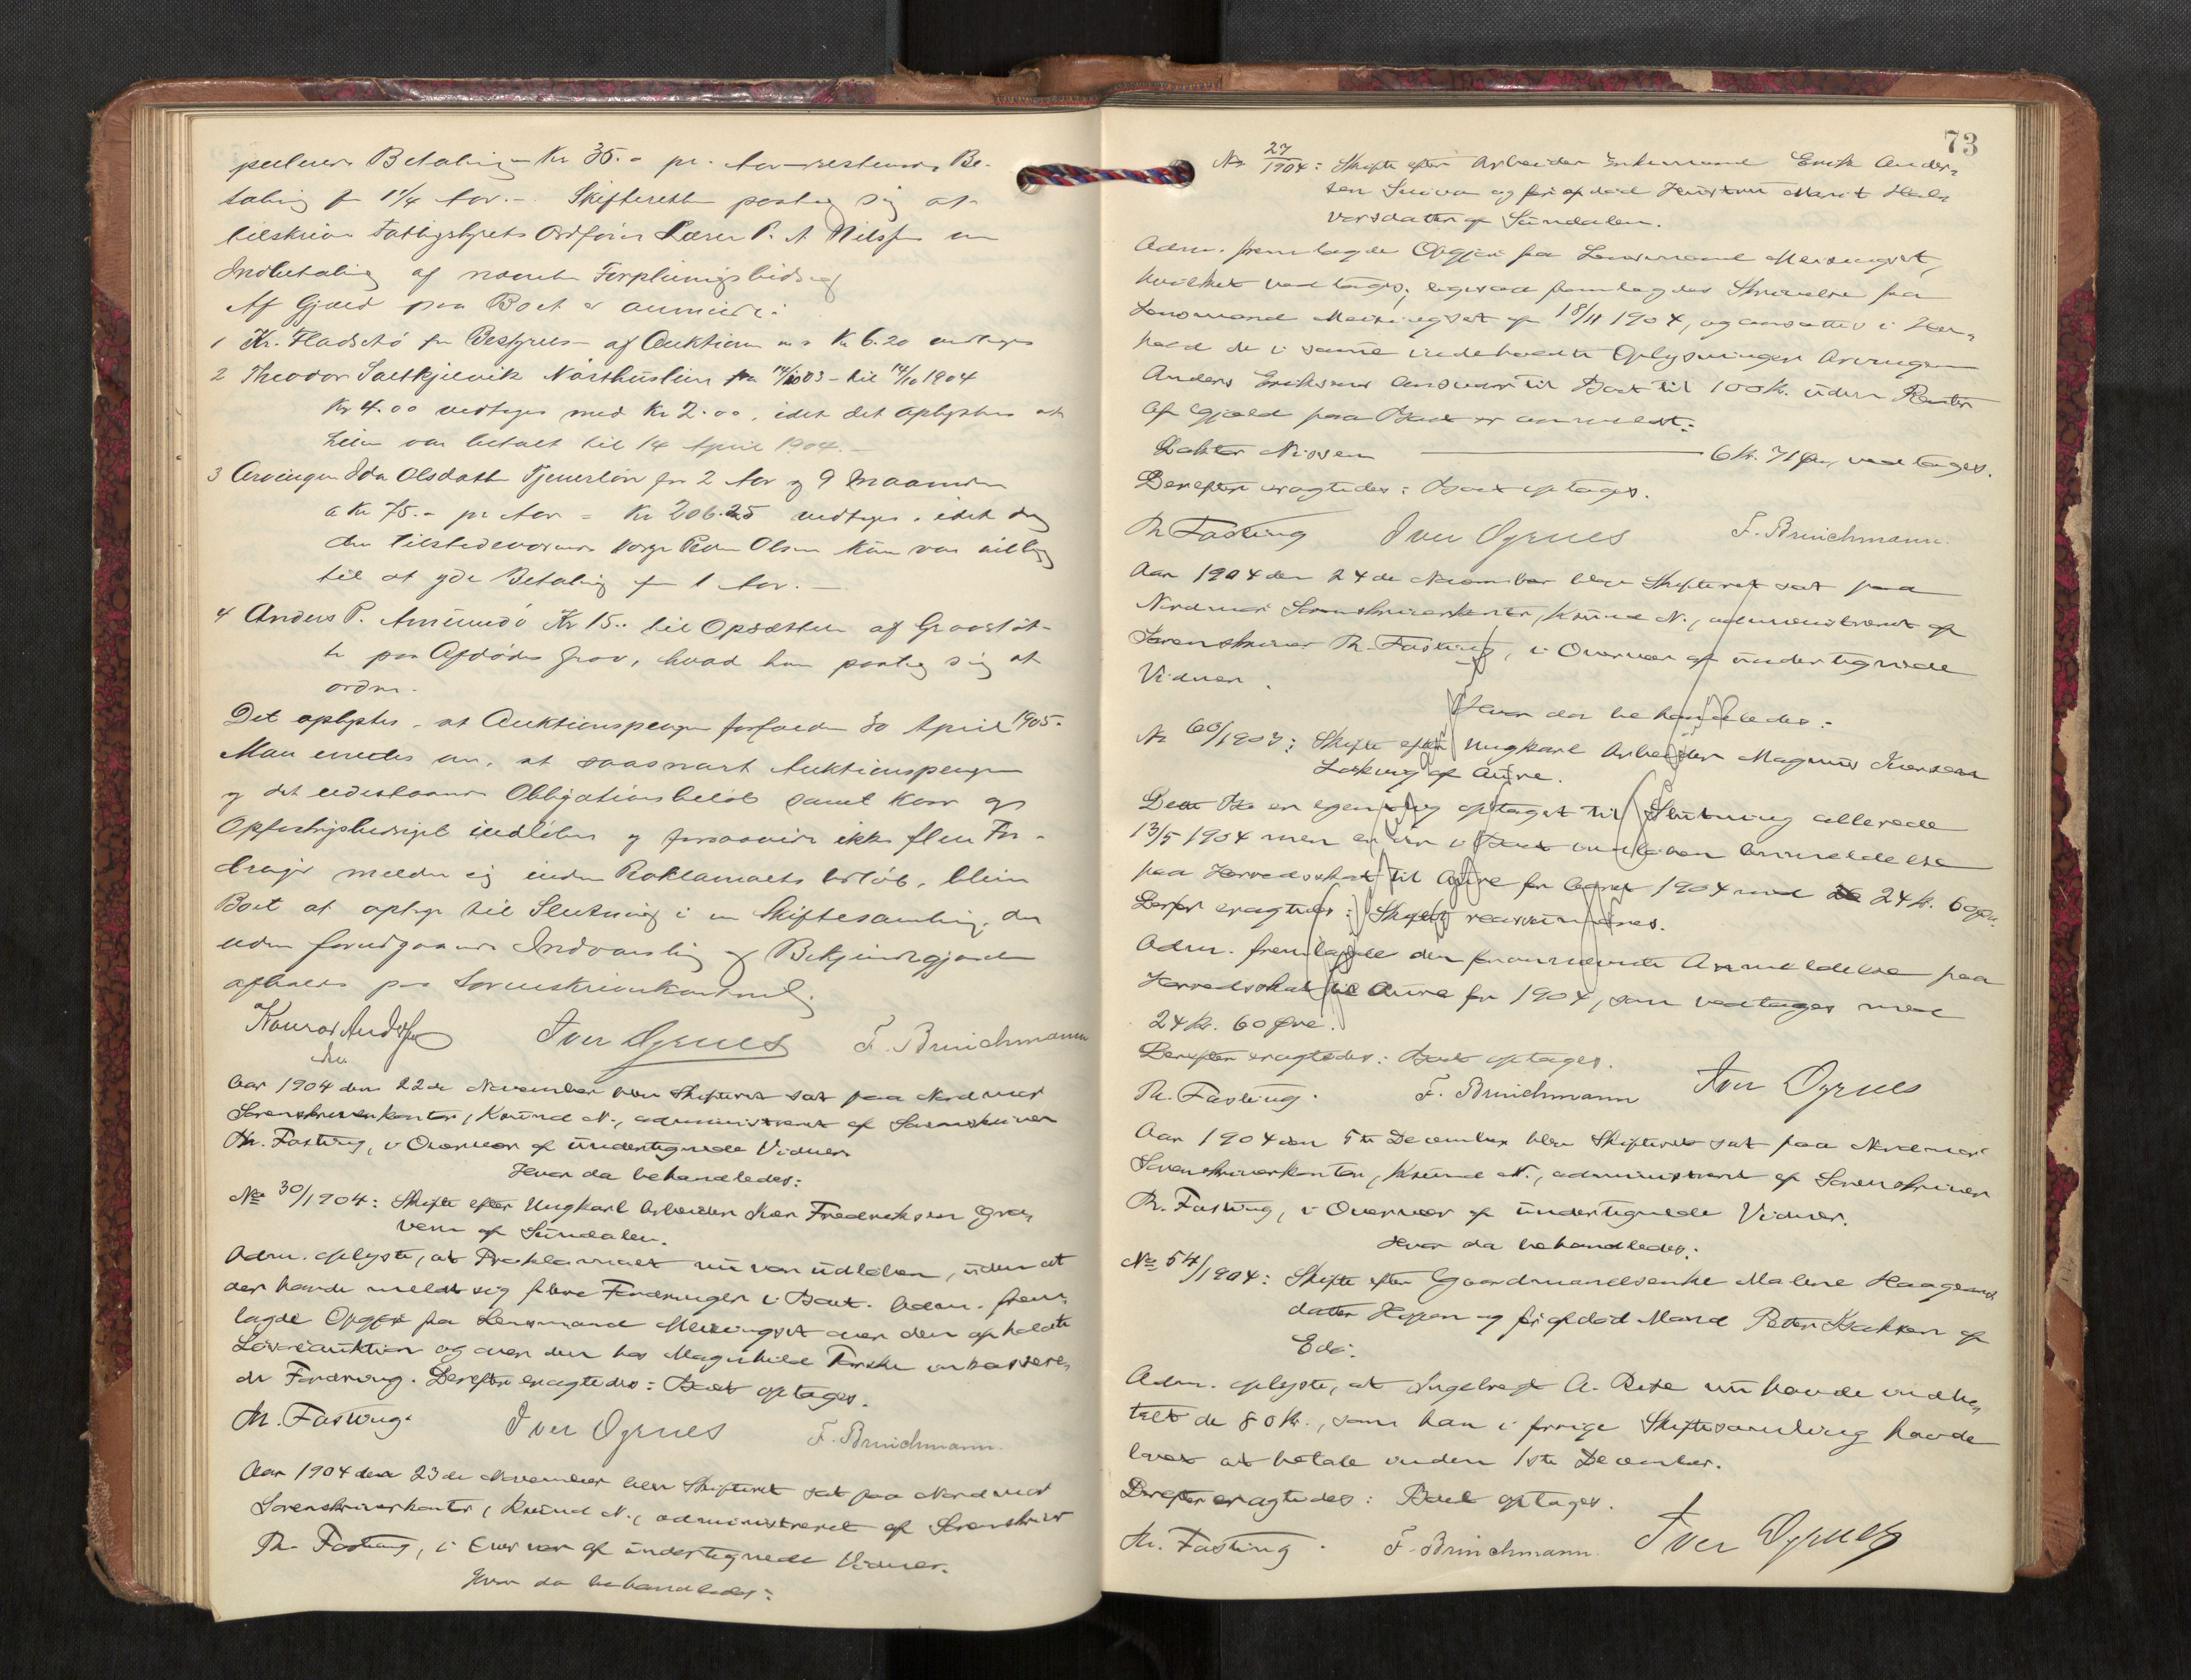 Betaling Kr 35.- pr. Aar
taling for 1 1/4 Aar.-. Skifteretten paatog sig at
tilskrive Ordfører Lærer P. A. Nilssen om
Indbetaling af nævnte Forpleiningsbidrag
Af Gjæld paa Boet er anmeldt:
1 Kr. Fladsetø for af Auktion Kr 6.20 vedtages
2 Theodor fra 14/10 03 - til 14/10 1904
Kr 4.00 vedtages med Kr 2.00, idet det oplystes at
Leien var betalt til 14 April 1904.-
3 Arvingen Ida Olsdatter Tjenerløn for 2 Aar og 9 Maaneder
a Kr 75.- pr Aar = Kr 206.25 vedtages, idet dog
den tilstedeværende Verge Peder Olsen kun var villig
til at yde Betaling for 1 Aar.-
4 Anders P. Kr 15.. til Opsættelse af Gravstøt-
te paa Afdødes Grav, hvad han paatog sig at
ordne.
Det oplystes, at Auktionspengene forfalder 30 April 1905.
Man enedes om, at saasnart Auktionspengene
og det udestaaende Obligationsbeløb samt
indløber og forsaavidt ikke flere For-
dringer melder sig inden Proklamaets Udløb, bliver
Boet at optage til Slutning i en Skiftesamling, der
uden forudgaaende Indvarsling og Bekjendtgjørelse
afholdes paa Sorenskriverkontoret.
Iver Ogrues F. Brinchmann
Aar 1904 den 22de November blev Skifteret sat paa Nordmør
Sorenskriverkontor, Krsund N., administreret af Sorenskriver
Th. Fasting, i Overvær af undertegnede Vidner.
Hvor da behandledes:
No 30/1904: Skifte efter Ungkarl Arbeider Fredriksen Gra-
vem af Sundalen.
Adm. oplyste, at Proklamaet nu var udløben, uden at
der havde meldt sig flere Fordringer i Boet. Adm. frem-
lagde Opgjør fra Lensmand Meisingset over den afholdte
Løsøreauktion og over den hos Magnhild inkassere-
de Fordring. Derefter eragtedes: Boet optages.
Th. Fasting. Iver Ogrues F. Brinchmann.
Aar 1904 den 23de November blev Skifteret sat paa Nordmør
Sorenskriverkontor, Krsund N., administreret af Sorenskriver
Th. Fasting, i Overvær af undertegnede Vidner.
Hvor da behandledes:
73
No 27/1904: Skifte efter Arbeider Enkemand Erik Ander-
sen og førafdød Hustru Marit Hal-
vorsdatter af Sundalen.
Adm. fremlagde Opgjør fra Lensmand Meisingset,
hvilket vedtoges; ligesaa fremlagdes Skrivelse fra
Lensmand Meisingset af 18/11 1904, og ansattes i Hen-
hold de i samme indeholdte Oplysninger Arvingen
Anders Eriksens Ansvar til Boet til 100 Kr. uden Renter
Af Gjæld paa Boet er anmeldt:
Doktor Nissen 6 Kr. 71 Øre, vedtages.
Derefter eragtedes: Boet optages.
Th Fasting Iver Ogrues F. Brinchmann.
Aar 1904 den 24de November blev Skifteret sat paa
Nordmør Sorenskriverkontor, Krsund N., administreret af
Sorenskriver Th. Fasting, i Overvær af undertegnede
Vidner.
Hvor da behandledes:
No 60/1903: Skifte efter Ungkarl Arbeider Magnus Iversen
af Aure.
Dette Bo er egentlig optaget til Slutning allerede
13/5 1904 men er der i Boet indløben Anmeldelse
paa Herredsskat til Aure for Aaret 1904 med 24 Kr. 60 Øre.
Derfor eragtedes: Skiftet reassumeres.
Adm. fremlagde den forannævnte Anmeldelse paa
Herredsskat til Aure for 1904, som vedtages med
24 Kr. 60 Øre.
Derefter eragtedes: Boet optages.
Th. Fasting. F. Brinchmann Iver Ogrues
Aar 1904 den 5te December blev Skifteret sat paa Nordmør
Sorenskriverkontor, Krsund N., administreret af Sorenskriver
Th. Fasting, i Overvær af undertegnede Vidner.
Hvor da behandledes:
No 54/1904: Skifte efter Gaardmandsenke Malene Haagens-
datter og førafdød Mand Peter Isaksen af
Edø.
Adm. oplyste, at Ingebregt A. nu havde indbe-
talt de 80 Kr., som han i forrige Skiftesamling havde
lovet at betale inden 1ste December.
Derefter eragtedes: Boet optages.
Th. Fasting. F. Brinchmann. Iver Ogrues